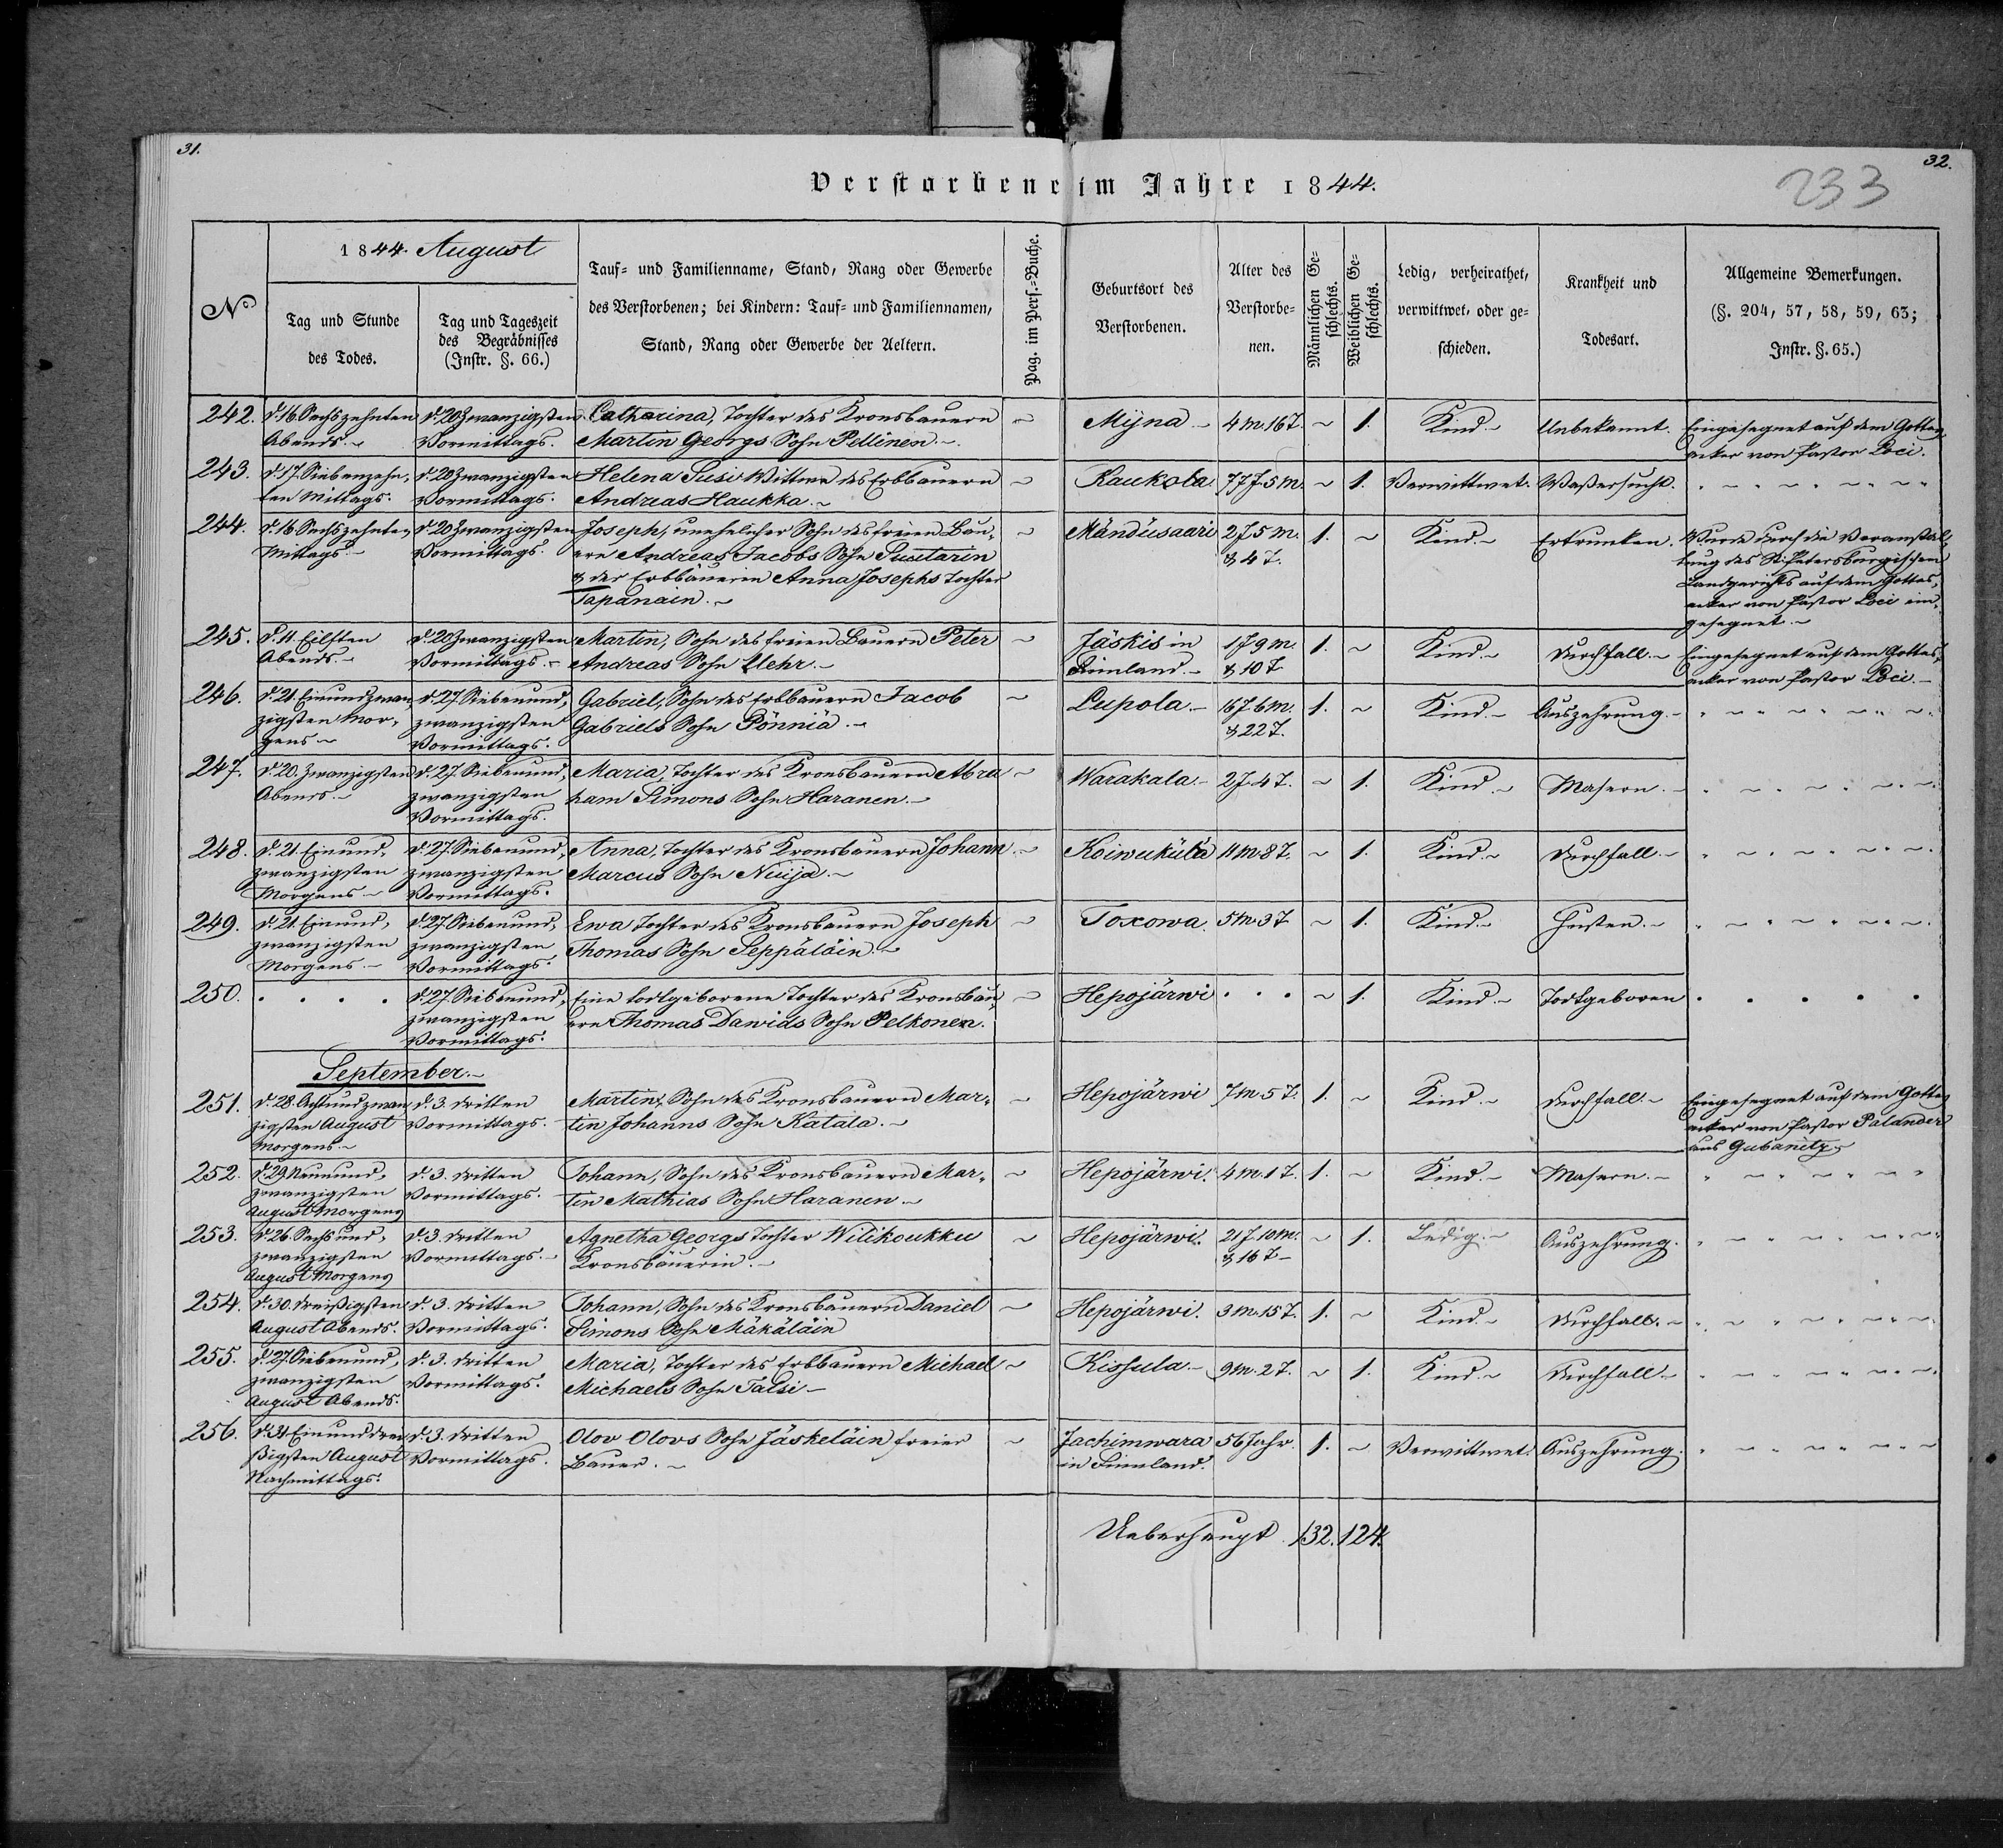 31.
32.
233
Verstorbene im Jahre 1844.
No
1844. August
Tag und Stunde
des Todes.
Tag und Tageszeit
des Begräbnisses
(Instr. §. 66.)
Tauf- und Familienname, Stand, Rang oder Gewerbe
des Verstorbenen; bei Kindern: Tauf- und Familiennamen,
Stand, Rang oder Gewerbe der Aeltern.
Pag. im Pers.-Buche.
Geburtsort des
Verstorbenen.
Alter des
Verstorbe-
nen.
Männlichen Ge-
schlechts.
Weiblichen Ge-
schlechts.
Ledig, verheirathet,
verwittwet, oder ge-
schieden.
Krankheit und
Todesart.
Allgemeine Bemerkungen.
(§. 204, 57, 58, 59, 63;
Instr. §. 65.)
242. d. 16. Sechszehnten d. 20 Zwanzigsten Catharina, Tochter des Kronsbauern ~ Mÿna - 4 M. 16 T. ~ 1. Kind.~ Unbekannt. Eingesegnet auf dem Gottes,
Abends.~ Vormittags. Martin Georgs Sohn Pellinen.~ acker von Pastor Loci.
243. d. 17. Siebenzehn, d. 20 Zwanzigsten Helena Susi Wittwe des Erbbauern ~ Raukola 77 J. 5 M. ~ 1. Verwittwet. Waßersucht. " ~ " ~ " ~ " ~
ten Mittags. Vormittags. Andreas Haukka.~
244. d. 16 Sechszehnten d. 20 Zwanzigsten Joseph, unehelicher Sohn des freien Bau, ~ Mändüsaari 2 J. 5 M. 1. ~ Kind.~ Ertrunken. Wurde durch die Veranstal,
Mittags.~ Vormittags. ern Andreas Jacobs Sohn Suutarin & 4 T. tung des St. Petersburgischen
& der Erbbäuerin Anna Josephs Tochter Landgerichts auf dem Gottes,
Tapanain.~ acker von Pastor Loci ein,
gesegnet.~
245. d. 11. Eilften d. 20 Zwanzigsten Martin, Sohn des freien Bauern Peter ~ Jäskis in 1 J. 9 M. 1. ~ Kind.~ Durchfall.~ Eingesegnet auf dem Gottes,
Abends.~ Vormittags.~ Andreas Sohn Uehr.~ Finnland.~ & 10 T. acker von Pastor Loci.~
246. d. 21. Einundzwan, d. 27. Siebenund, Gabriel, Sohn des Erbbauern Jacob ~ Lupola.~ 16 J. 6 M. 1. ~ Kind.~ Auszehrung.~ " ~ " ~ " ~ " ~
zigsten Mor, zwanzigsten Gabriels Sohn Pönniä.~ & 22 T.
gens~ Vormittags.
247. d. 20. Zwanzigsten d. 27. Siebenund, Maria, Tochter des Kronsbauern Abra ~ Warakala.~ 2 J. 4 T. ~ 1. Kind.~ Masern.~ " ~ " ~ " ~ " ~
Abends.~ zwanzigsten ham Simons Sohn Haranen.~
Vormittags.
248. d. 21. Einund, d. 27. Siebenund, Anna, Tochter des Kronsbauern Johann ~ Koiwuküla 11 M. 8 T. ~ 1. Kind.~ Durchfall.~ " ~ " ~ " ~ " ~
zwanzigsten zwanzigsten Marcus Sohn Nuija.~
Morgens~ Vormittags.
249. d. 21. Einund, d. 27. Siebenund, Ewa Tochter des Kronsbauern Joseph ~ Toxowa. 5 M. 3 T. ~ 1. Kind.~ Husten.~ " ~ " ~ " ~ " ~
zwanzigsten zwanzigsten Thomas Sohn Seppäläin.~
Morgens.~ Vormittags.
250. . . . . d. 27. Siebenund, Eine todtgeborene Tochter des Kronsbau, ~ Hepojärwi . . . ~ 1. Kind.~ Todtgeboren . . . . . .
zwanzigsten ern Thomas Dawids Sohn Pelkonen.
Vormittags.
September.~
251. d. 28. Achtundzwan, d. 3. dritten Martin, Sohn des Kronsbauern Mar, ~ Hepojärwi 7 M. 5 T. 1. ~ Kind.~ Durchfall.~ Eingesegnet auf dem Gottes
zigsten August Vormittags. tin Johanns Sohn Katala.~ acker von Pastor Palander
Morgens.~ aus Gubanitz
252. d. 29. Neunund, d. 3. dritten Johann, Sohn des Kronsbauern Mar, ~ Hepojärwi. 4 M. 1 T. 1. ~ Kind.~ Masern.~ " ~ " ~ " ~ "
zwanzigsten Vormittags. tin Mathias Sohn Haranen~
August Morgens
253. d. 26. Sechsund, d. 3. dritten Agnetha Georgs Tochter Wilikoukku ~ Hepojärwi. 21 J. 10 M. ~ 1. Ledig.~ Auszehrung. " ~ " ~ " ~ " ~
zwanzigsten Vormittags.~ Kronsbäuerin.~ & 16 T.~
August Morgens
254. d. 30. dreißigsten d. 3. dritten Johann, Sohn des Kronsbauern Daniel ~ Hepojärwi. 3 M. 15 T. 1. ~ Kind.~ Durchfall.~ " ~ " ~ " ~ " ~
August Abends. Vormittags. Simons Sohn Mäkäläin
255. d. 27. Siebenund, d. 3. dritten Maria, Tochter des Erbbauern Michael ~ Kissula.~ 9 M. 2 T. ~ 1. Kind.~ Durchfall.~ " ~ " ~ " ~ " ~
zwanzigsten Vormittags. Michaels Sohn Talsi~
August Abends.
256. d. 31 Einunddrei d. 3. dritten Olov Olovs Sohn Jäskeläin freier ~ Jachimwara 56 Jahr. 1. ~ Verwittwet. Auszehrung. " ~ " ~ " ~ " ~
ßigsten August Vormittags. Bauer.~ in Finnland.
Nachmittags.
Ueberhaupt. 132. 124.